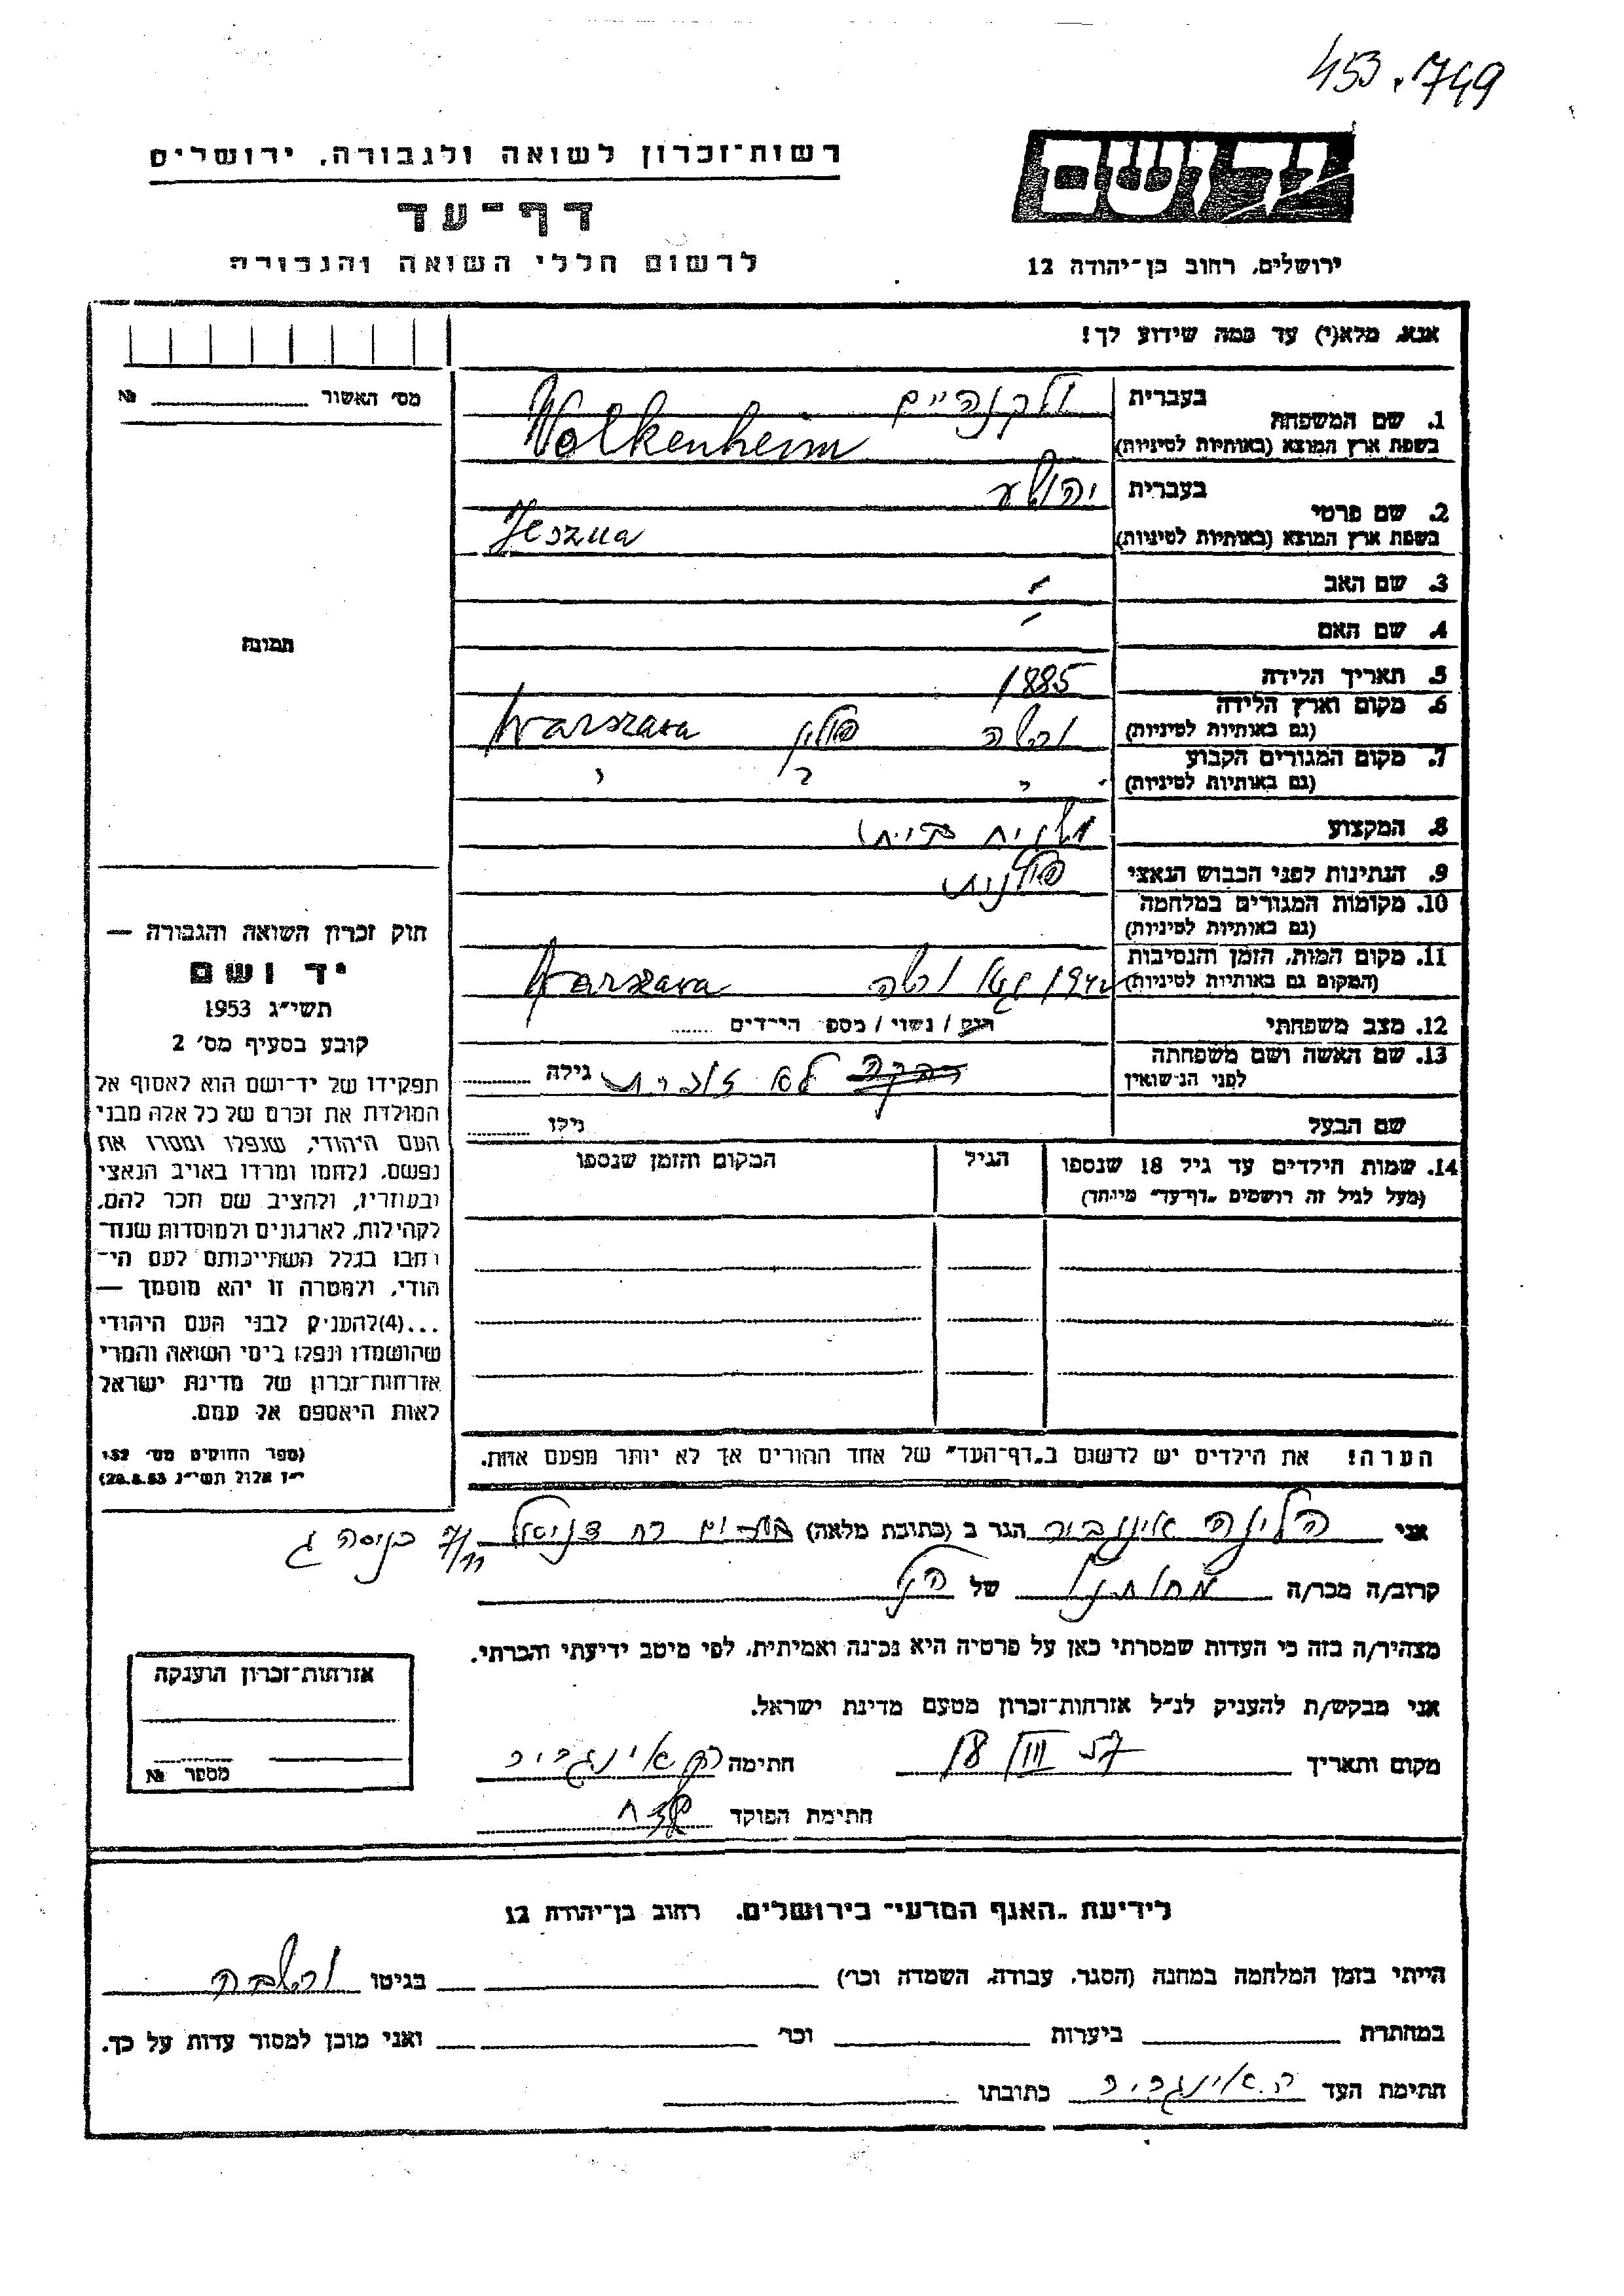 453.749
רשות־זכרון לשואה ולגבורה, ירושלים
דף־עד
לרשום חללי השואה והגבורה
יד ושם
ירושלים, רחוב בן־יהודה 12
אנא, מלא(י) עד כמה שידוע לך!
מס׳ האשור № 
1. שם המשפחה
בעברית ולקנהיים
בשפת ארץ המוצא (באותיות לטיניות) Wolkenheim
2. שם פרטי
בעברית יהושע
בשפת ארץ המוצא (באותיות לטיניות) Jeszua
3. שם האב -
4. שם האם -
תמונה
5. תאריך הלידה 1885
6. מקום וארץ הלידה
(גם באותיות לטיניות) ורשה פולין Warszawa
7. מקום המגורים הקבוע
(גם באותיות לטיניות) " " "
8. המקצוע
9. הנתינות לפני הכבוש הנאצי פולנית
10. מקומות המגורים במלחמה
(גם באותיות לטיניות)
11. מקום המות, הזמן והנסיבות
(המקום גם באותיות לטיניות) 1942 גטו ורשה Warszawa
12. מצב משפחתי רוק / נשוי / מספר הילדים ......
13. שם האשה ושם משפחתה
לפני הנישואין לא זוכרת גילה
שם הבעל גילו
14. שמות הילדים עד גיל 18 שנספו
(מעל לגיל זה רושמים „דף־עד״ מיוחד)
הגיל
המקום והזמן שנספו
הערה! את הילדים יש לרשום ב„דף־העד״ של אחד ההורים אך לא יותר מפעם אחת.
חוק זכרון השואה והגבורה —
יד ושם
תשי״ג 1953
קובע בסעיף מס׳ 2
תפקידו של יד־ושם הוא לאסוף אל
המולדת את זכרם של כל אלה מבני
העם היהודי, שנפלו ומסרו את
נפשם, נלחמו ומרדו באויב הנאצי
ובעוזריו, ולהציב שם וזכר להם,
לקהילות, לארגונים ולמוסדות שנח־
רבו בגלל השתייכותם לעם הי־
הודי, ולמטרה זו יהא מוסמך —
...(4)להעניק לבני העם היהודי
שהושמדו ונפלו בימי השואה והמרי
אזרחות־זכרון של מדינת ישראל
לאות היאספם אל עמם.
(ספר החוקים מס׳ 132
י״ז אלול תשי״ג 28.8.53)
אני הלינה אינגביר הגר ב (כתובת מלאה) בת־ים רח דניאל 7/11 כניסה ג
קרוב/ה מכר/ה של הנ״ל
מצהיר/ה בזה כי העדות שמסרתי כאן על פרטיה היא נכונה ואמיתית, לפי מיטב ידיעתי והכרתי.
אני מבקש/ת להעניק לנ״ל אזרחות־זכרון מטעם מדינת ישראל.
מקום ותאריך 18/III 57 חתימה ה. אינגביר
חתימת הפוקד
אזרחות־זכרון הוענקה
מספר №
לידיעת „האגף המדעי״ בירושלים, רחוב בן־יהודה 12
הייתי בזמן המלחמה במחנה (הסגר, עבודה, השמדה וכר׳) בגיטו ורשבה
במחתרת ביערות וכר׳ ואני מוכן למסור עדות על כך.
חתימת העד ה. אינגביר כתובתו